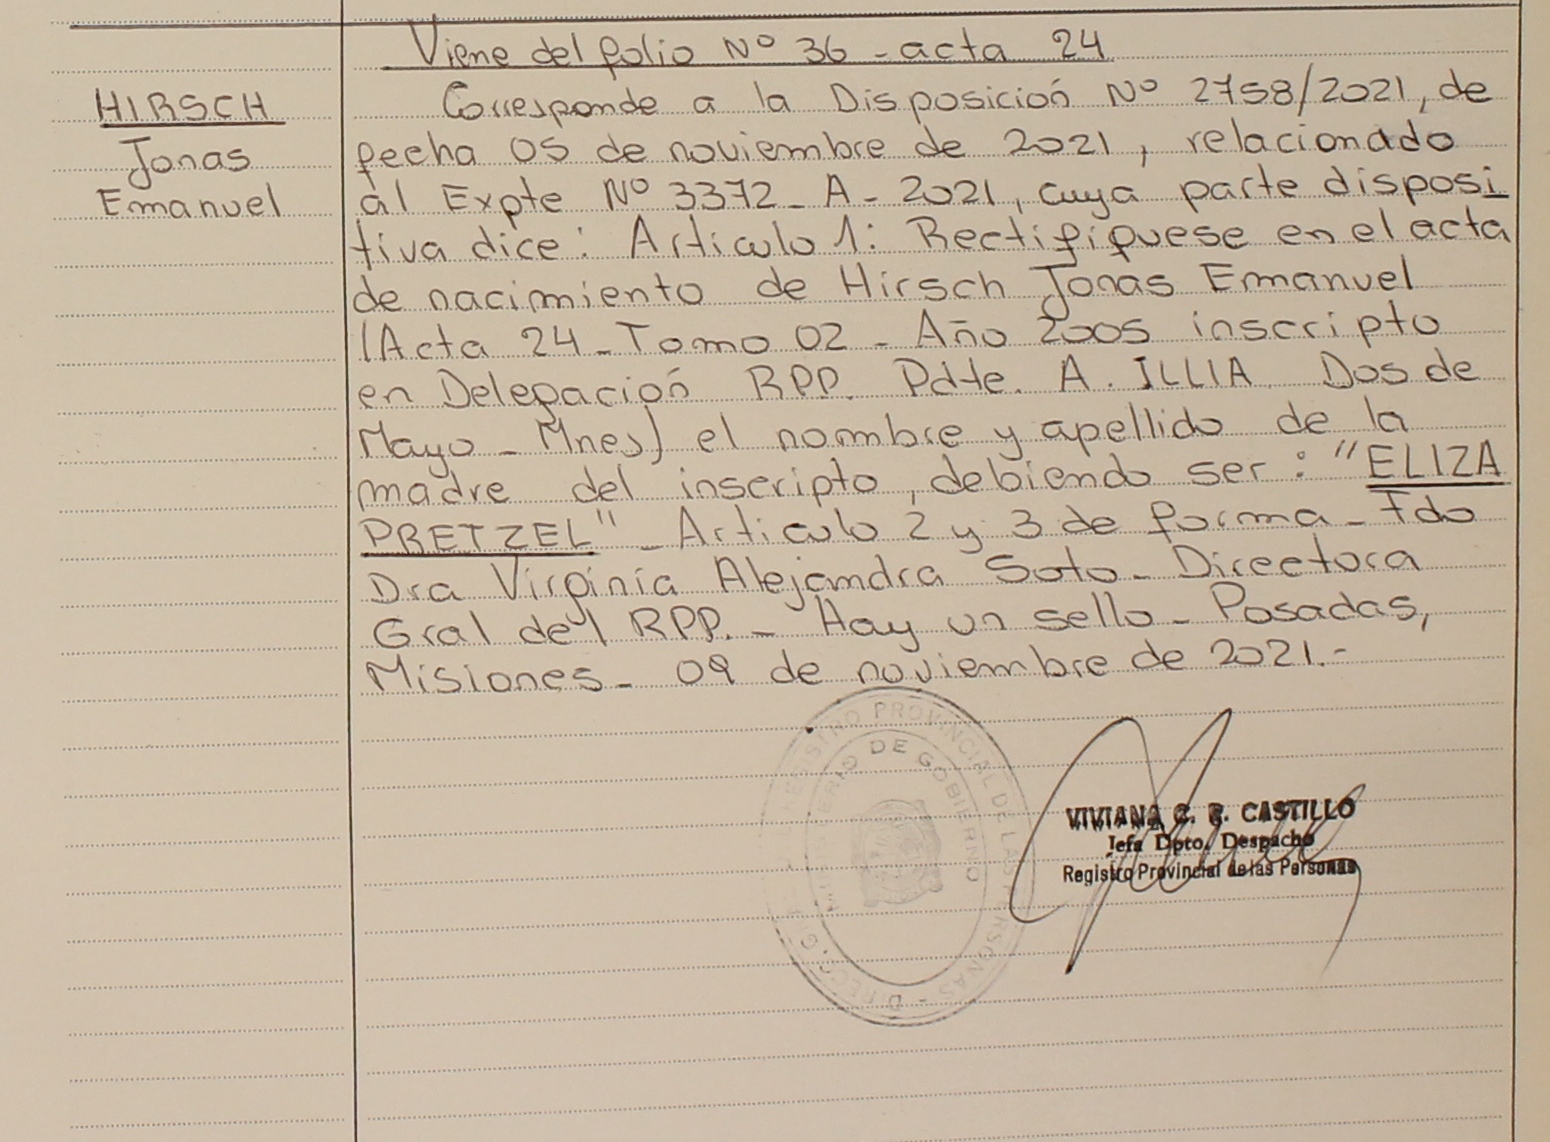 Viene del folio Nº 36 - acta 24
HIRSCH
Jonas
Emanuel
Corresponde a la Disposición Nº 2758/2021, de
fecha 05 de noviembre de 2021, relacionado
al Expte Nº 3372 - A - 2021, cuya parte disposi
tiva dice: Articulo 1: Rectifíquese en el acta
de nacimiento de Hirsch Jonas Emanuel
(Acta 24 - Tomo 02 - Año 2005 inscripto
en Delegación RPP. Pdte. A. ILLIA Dos de
Mayo - Mnes) el nombre y apellido de la
madre del inscripto, debiendo ser: "ELIZA
PRETZEL" - Articulo 2 y 3 de forma - Fdo
Dra Virginia Alejandra Soto - Directora
Gral del RPP. - Hay un sello - Posadas,
Misiones - 09 de noviembre de 2021.-
REGISTRO PROVINCIAL DE LAS PERSONAS
MINISTERIO DE GOBIERNO
VIVIANA C. CASTILLO
Jefa Dpto. Despacho
Registro Provincial de las Personas